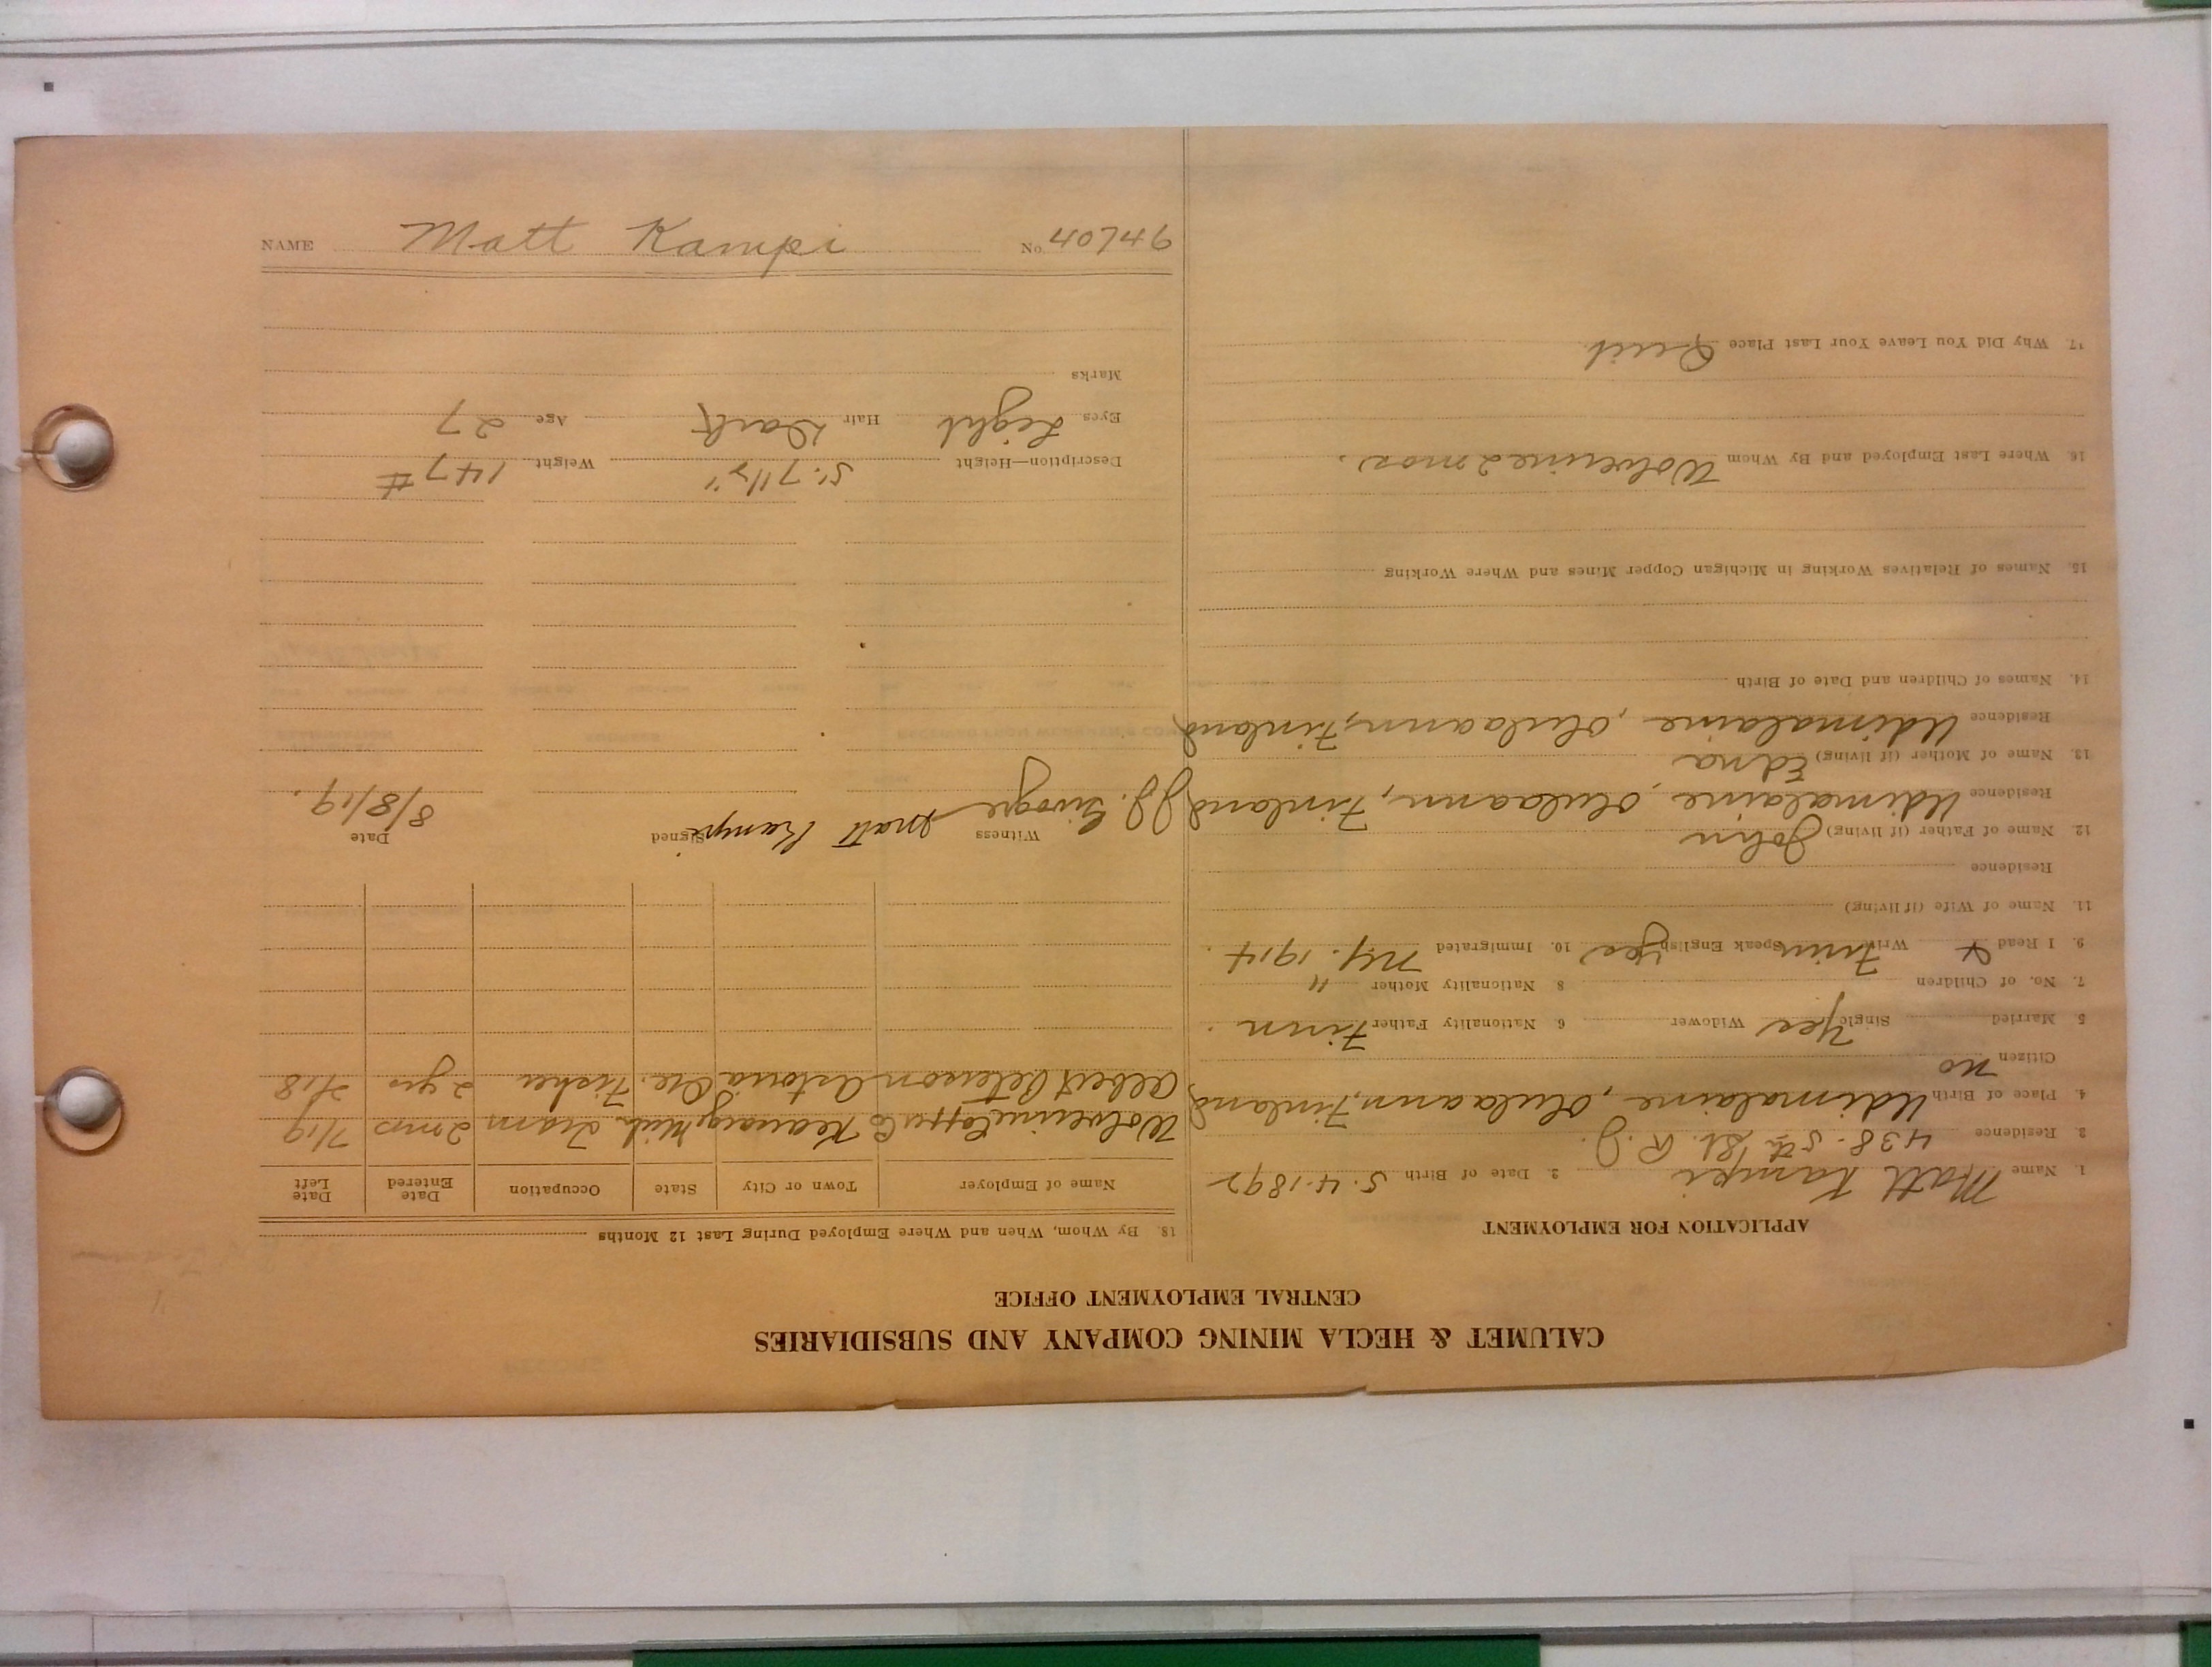 CALUMET & HECLA MINING COMPANY AND SUBSIDIARIES
CENTRAL EMPLOYMENT OFFICE
APPLICATION FOR EMPLOYMENT
1. Name Matt Kampi 2. Date of Birth 5.4.1892
3. Residence 438-5th St. R.J.
4. Place of Birth Udimalaine, Olulaann, Finland
Citizen no
5 Married Single Yes Widower 6 Nationality Father Finn
7. No. of Children 8 Nationality Mother "
9. I Read & Write Finn Speak English Yes 10. Immigrated NY. 1914.
11. Name of Wife (if living)
Residence
12. Name of Father (if living) John
Residence Udimalaine, Olulaann, Finland
13. Name of Mother (if living) Edna
Residence Udimalaine, Olulaann, Finland
14. Names of Children and Date of Birth
15. Names of Relatives Working in Michigan Copper Mines and Where Working
16. Where Last Employed and By Whom Wolverine 2 mos.
17. Why Did You Leave Your Last Place Quit
18. By Whom, When and Where Employed During Last 12 Months
Name of Employer Town or City State Occupation Date Entered Date Left
Wolverine Copper Co Kearsarge Mich Tram 2 mos 7/19
Albert Peterson Astoria Ore. Fisher 2 yrs 7/18
Witness J.J. Signed Matt Kampi Date 8/8/19.
Description—Height 5'. 7 1/2" Weight 147 #
Eyes Light Hair Dark Age 27
Marks
NAME Matt Kampi No. 40746